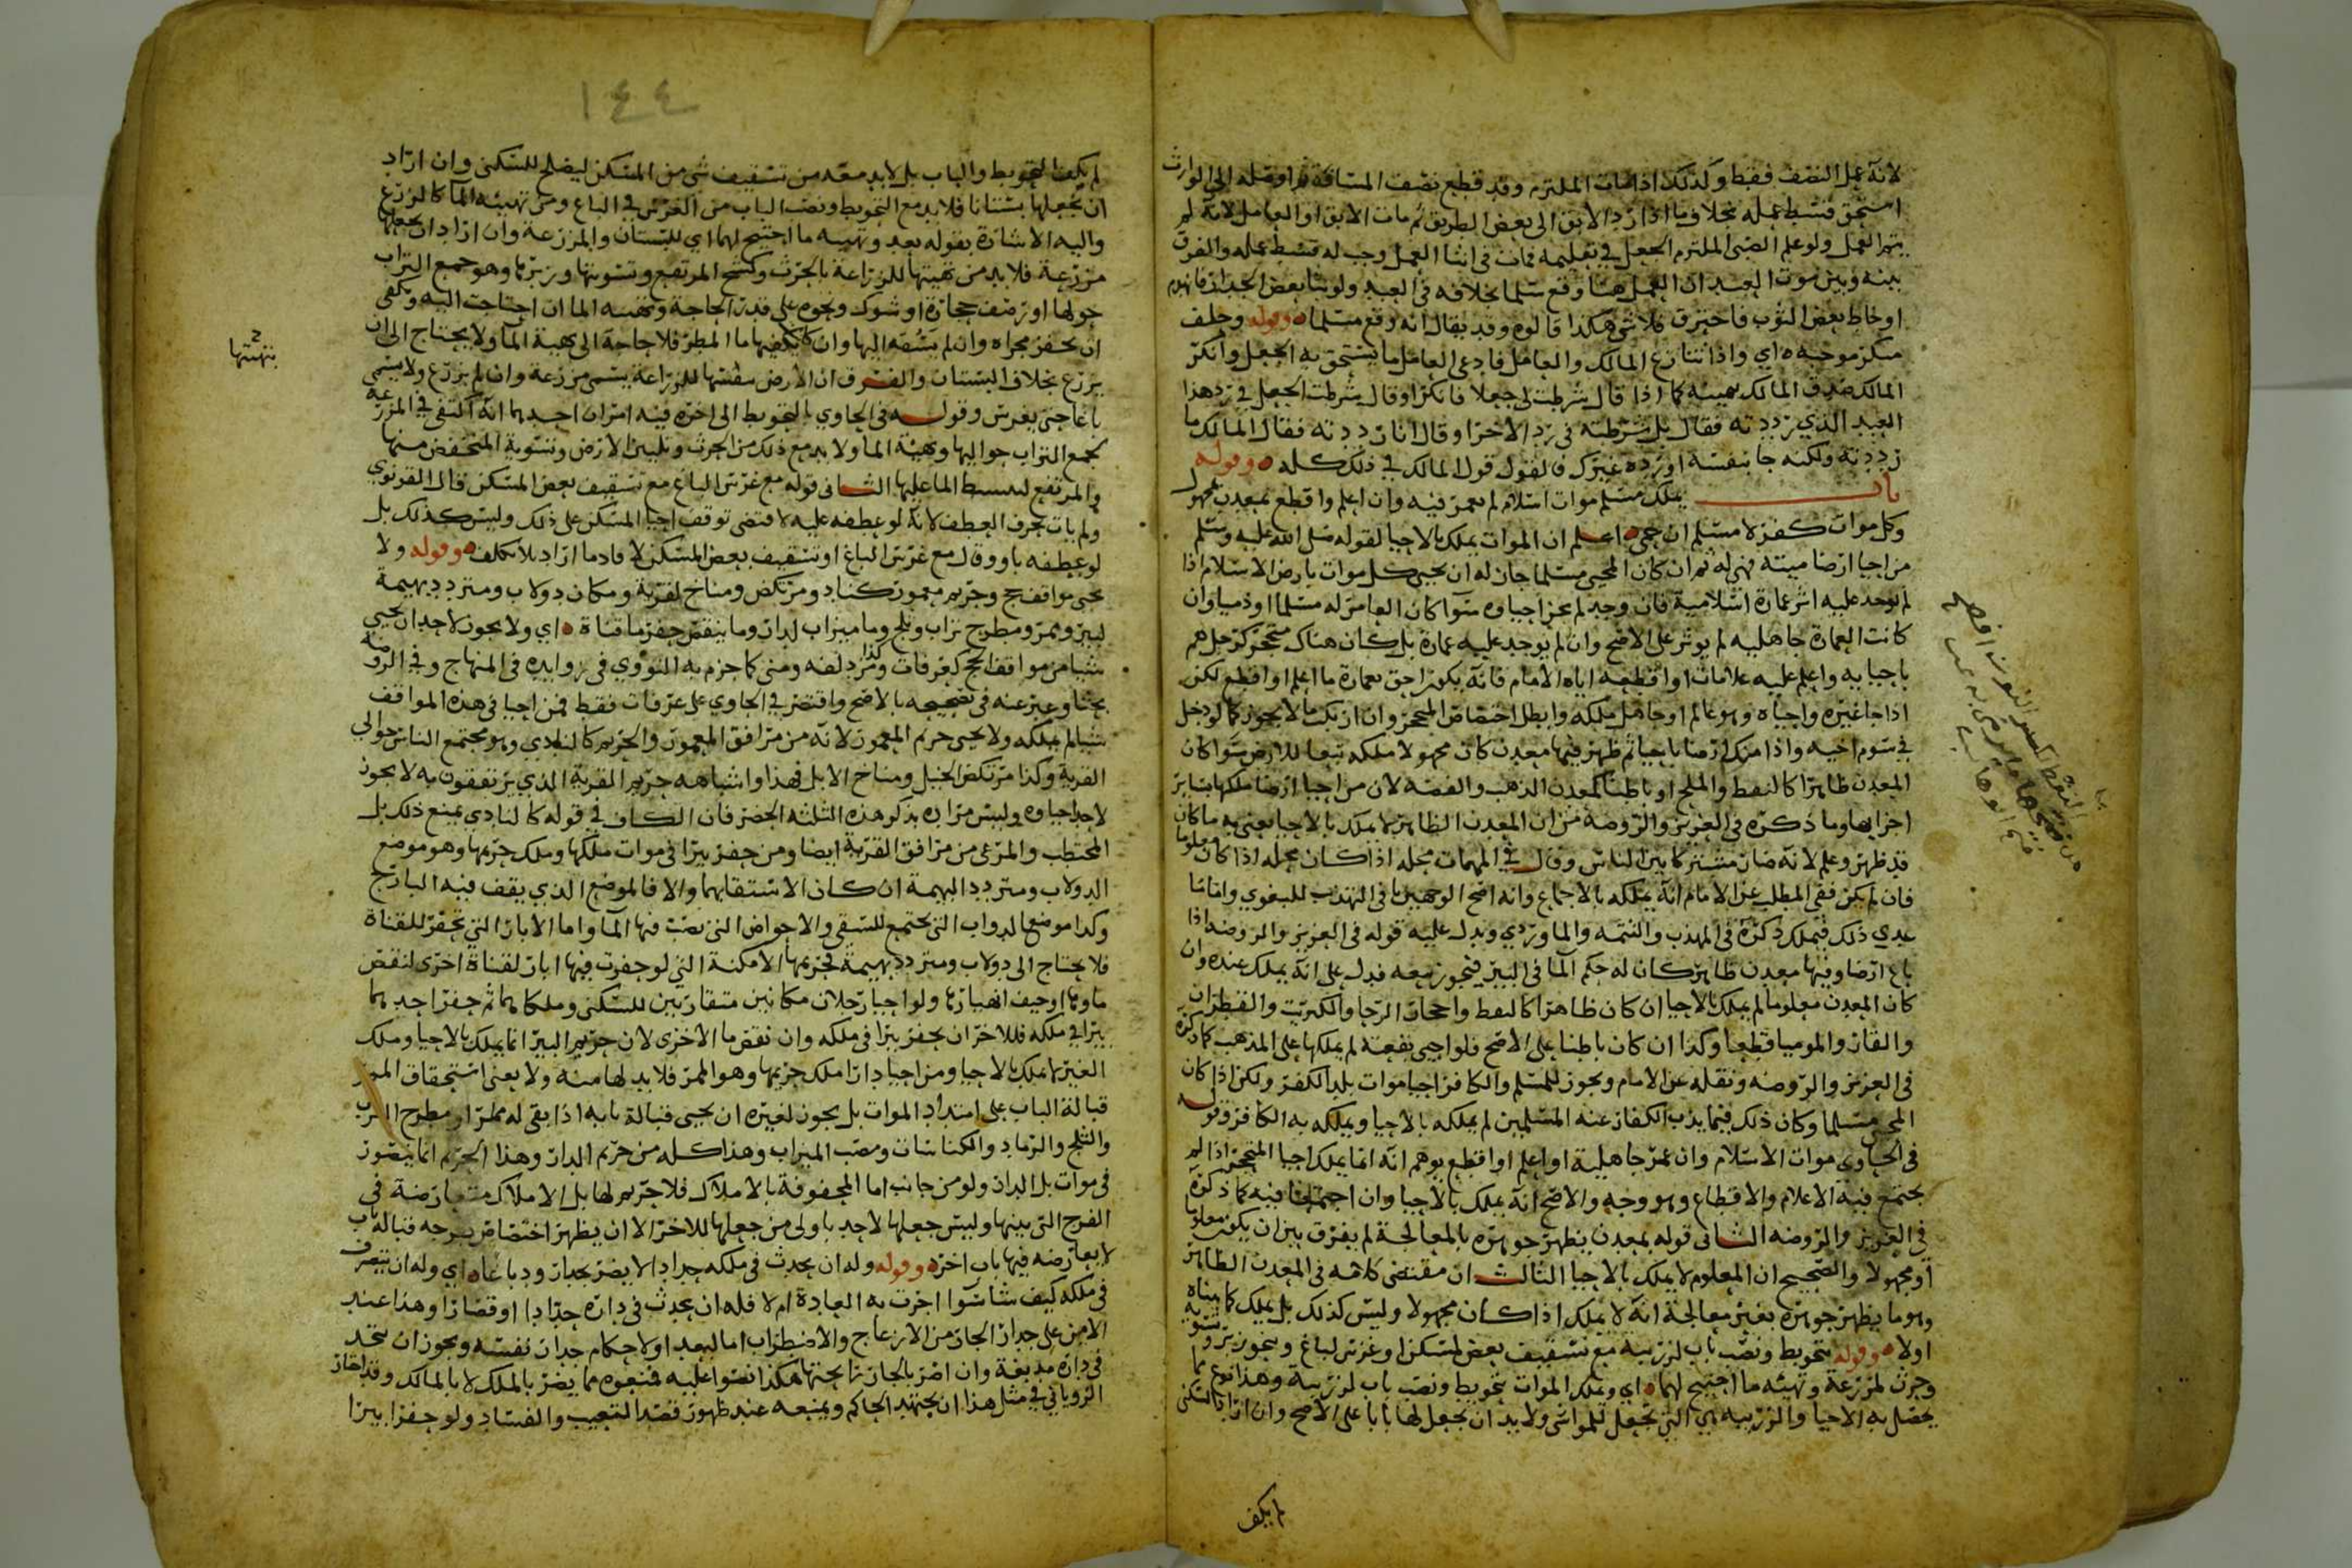 لانه عمل النصف فقط وكذلك اذا مات الملتزم وقد قطع نصف المسافة ثم اوصله الى الوارث
استحق قسط عمله بخلاف ما اذا رد الابق الى بعض الطريق ثم مات الابق او العامل لانه لم
يتم العمل ولو علم الصبي الملتزم الجعل في تعليمه فمات في اثنا العمل وجب له قسط عمله والفرق
بينه وبين موت العبد ان العمل هنا وقع مسلما بخلافه في العبد ولو بنا بعض الجدار فانهدم
او خاط بعض الثوب فاحترق فلا شي هكذا قالوه وقد يقال انه وقع مسلما وقوله وحلف
منكر موجبه اي واذا تنازع المالك والعامل فادعى العامل ما يستحق به الجعل وانكر
المالك صدق المالك بيمينه كما اذا قال شرطت لي جعلا فانكر او قال شرطت الجعل في رد هذا
العبد الذي رددته فقال بل شرطته في رد الاخر او قال انا رددته فقال المالك ما
رددته ولكنه جا بنفسه او رده غيرك فالقول قول المالك في ذلك كله وقوله
باب يملك مسلم موات اسلام لم يعمر فيه وان اعلم واقطع بمعدن مجهول
وكل موات كفر لا مسلم ان حمي اعلم ان الموات يملك بالاحيا لقوله صلى الله عليه وسلم
من احيا ارضا ميتة فهي له ثم ان كان المحيي مسلما جاز له ان يحيي كل موات بارض الاسلام اذا
لم يوجد عليه اثر عمارة اسلامية فان وجد لم يجز احياوه سوا كان العامر له مسلما او ذميا وان
كانت العمارة جاهليه لم يوثر على الاصح وان لم يوجد عليه عمارة بل كان هناك متحجر كرجل هم
باحيايه واعلم عليه علامات او اقطعه اياه الامام فانه يكون احق بعمارة ما اعلم او اقطع لكن
اذا جا غيره واحياه وهو عالم او جاهل ملكه وابطل اختصاص المتحجر وان ارتكب ما لا يجوز كما لو دخل
في سوم اخيه واذا ملك ارضا باحيا ثم ظهر فيها معدن كان مجهولا ملكه تبعا للارض سوا كان
المعدن ظاهرا كالنفط والملح او باطنا كمعدن الذهب والفضه لان من احيا ارضا ملكها بساير
اجزايها وما ذكره في العزيز والروضة من ان المعدن الظاهر لا يملك بالاحيا يعني به ما كان
قد ظهر وعلم لانه صار مشتركا بين الناس وقال في المهمات محله اذا كان معلوما
فان لم يكن ففي المطلب عن الامام انه يملكه بالاجماع وانه اصح الوجهين في التهذيب للبغوي واما ما
عدى ذلك فيملك ذكره في المهذب والتتمه والماوردي ويدل عليه قوله في العزيز والروضه اذا
باع ارضا وفيها معدن ظاهر كان له حكم الما في البير فيجوز بيعه فدل على انه يملك عنده وان
كان المعدن معلوما لم يملك بالاحيا ان كان ظاهرا كالنفط واحجار الرحا والكبريت والقطران
والقار والموميا قطعا وكذا ان كان باطنا على الاصح فلو احيى بقعته لم يملكها على المذهب كما ذكره
في العزيز والروضه ونقله عن الامام ويجوز للمسلم والكافر احيا موات بلد الكفر ولكن اذا كان
المحيي مسلما وكان ذلك فيما يذب الكفار عنه المسلمين لم يملكه بالاحيا ويملكه به الكافر وقوله
في الحاوي موات الاسلام وان عمر جاهلية او اعلم او اقطع يوهم انه انما يملك احيا المتحجر اذا لم
يجتمع فيه الاعلام والاقطاع وهو وجه والاصح انه يملك بالاحيا وان اجتمعا فيه كما ذكره
في العزيز والروضه الثاني قوله بمعدن يظهر جوهره بالمعالجة لم يفرق بين ان يكون معلوما
او مجهولا والصحيح ان المعلوم لا يملك بالاحيا الثالث ان مقتضى كلامه في المعدن الظاهر
وهو ما يظهر جوهره بغير معالجة انه لا يملك اذا كان مجهولا وليس كذلك بل يملك كما بيناه
اولا وقوله بتحويط ونصب باب لزريبه مع تسقيف بعض لمسكن او غرس لباغ وبنحو زبر وتسويه
وحرث لمزرعة وتهيئه ما احتيج لهما اي ويملك الموات بتحويط ونصب باب لزريبة وهذا نوع مما
يحصل به الاحيا والزريبه هي التي تجعل للمواشي ولا بد ان يجعل لها بابا على الاصح وان اراد السكنى
لم يكف
١٤٤
لم يكف التحويط والباب بل لا بد معه من تسقيف شي من المسكن ليصلح للسكنى وان اراد
ان يجعلها بستانا فلا بد مع التحويط ونصب الباب من الغرس في الباغ ومن تهيئه الما كالمزرع
واليه الاشارة بقوله بعد وتهيئه ما احتيج لهما اي للبستان والمزرعة وان اراد ان يجعلها
مزرعة فلا بد من تهيئتها للزراعة بالحرث وكسح المرتفع وتسويتها وزبرها وهو جمع التراب
حولها او نصف حجارة او شوك ونحوه على قدر الحاجة وتهيئه الما ان احتاجت اليه ويكفي
ان يحفر مجراه وان لم يسقه اليها وان كان يكفيها ما المطر فلا حاجة الى تهيئة الما ولا يحتاج الى ان
يزرع بخلاف البستان والفرق ان الارض بتهيئتها للزراعة يسمى مزرعة وان لم يزرع ولا يسمى
باغا حتى يغرس وقوله في الحاوي بالتحويط الى اخره فيه امران احدهما انه اكتفى في المزرعه
بجمع التراب حواليها وتهيئة الما ولا بد مع ذلك من الحرث وتليين الارض وتسوية المنخفض منها
والمرتفع لينبسط الما عليها الثاني قوله مع غرس الباغ مع تسقيف بعض المسكن قال القونوي
ولم يات بحرف العطف لانه لو عطفه عليه لاقتضى توقف احيا المسكن على ذلك وليس كذلك بل
لو عطفه باو وقال مع غرس الباغ او تسقيف بعض المسكن لافاد ما اراد بلا تكلف وقوله ولا
يحيى مواقف حج وحريم معمور كناد ومرتكض ومناخ لقرية ومكان دولاب ومتردد بهيمة
لبير وممر ومطرح تراب وثلج وما ميزاب لدار وما ينقص حفر ما قناة اي ولا يجوز لاحد ان يحيي
شيا من مواقف الحج كعرفات وكذا مزدلفه ومنى كما جزم به النووي في زوايده في المنهاج وفي الروضة
بحثا وعبر عنه في تصحيحه بالاصح واقتصر في الحاوي على عرفات فقط فمن احيا في هذه المواقف
شيا لم يملكه ولا يحيى حريم المعمور لانه من مرافق المعمور والحريم كالنادي وهو مجتمع الناس حوالي
القرية وكذا مرتكض الخيل ومناخ الابل فهذا واشباهه حريم القرية الذي يرتفقون به لا يجوز
لاحد احياوه وليس مراده بذكر هذه الثلثه الحصر فان الكاف في قوله كالنادي يمنع ذلك بل
المحتطب والمرعى من مرافق القرية ايضا ومن حفر بيرا في موات ملكها وملك حريمها وهو موضع
الدولاب ومتردد البهيمة ان كان الاستقا بهما والا فالموضع الذي يقف فيه النازح
وكذا موضع الدواب التي يجتمع للسقي والاحواض التي يصب فيها الما واما الابار التي تحفر للقناة
فلا يحتاج الى دولاب ومتردد بهيمة فحريمها الامكنة التي لو حفرت فيها ابار لقناة اخرى لنقص
ماوها او خيف انهيارها ولو احيا رجلان مكانين متقاربين للسكنى وملكاهما ثم حفر احدهما
بيرا في ملكه فللاخر ان يحفر بيرا في ملكه وان نقص ما الاخرى لان حريم البير انما يملك بالاحيا وملك
الغير لا يملك بالاحيا ومن احيا دارا ملك حريمها وهو الممر فلا بد لها منه ولا يعنى استحقاق الممر
قبالة الباب على امتداد الموات بل يجوز لغيره ان يحيى قبالة بابه اذا بقى له ممرا ومطرح التراب
والثلج والرماد والكناسات ومصب الميزاب وهذا كله من حريم الدار وهذا الحريم انما يتصور
في موات بل الدار ولو من جانب اما المحفوفة بالاملاك فلا حريم لها بل الاملاك متعارضة في
الفرج التي بينها وليس جعلها لاحد باولى من جعلها للاخر الا ان يظهر اختصاص بوجه قبالة باب
لا يعارضه فيها باب اخر وقوله وله ان يحدث في ملكه حداد لا يضر بجدار ودباغا اي وله ان يتصرف
في ملكه كيف شا سوا اجرت به العادة ام لا فله ان يحدث في داره حدادا او قصارا وهذا عند
الامن على جدار الجار من الانزعاج والاضطراب اما لبعد او لاحكام جدار نفسه ويجوز ان يتخد
في داره مدبغة وان اضر بالجار تاخيتها هكذا نصوا عليه فمنعوه مما يضر بالملك لا بالمالك وقد اختار
الروياني في مثل هذا ان يجتهد الحاكم ويمنعه عند ظهور قصد التعيب والفساد ولو حفر بيرا
بتهيئتها